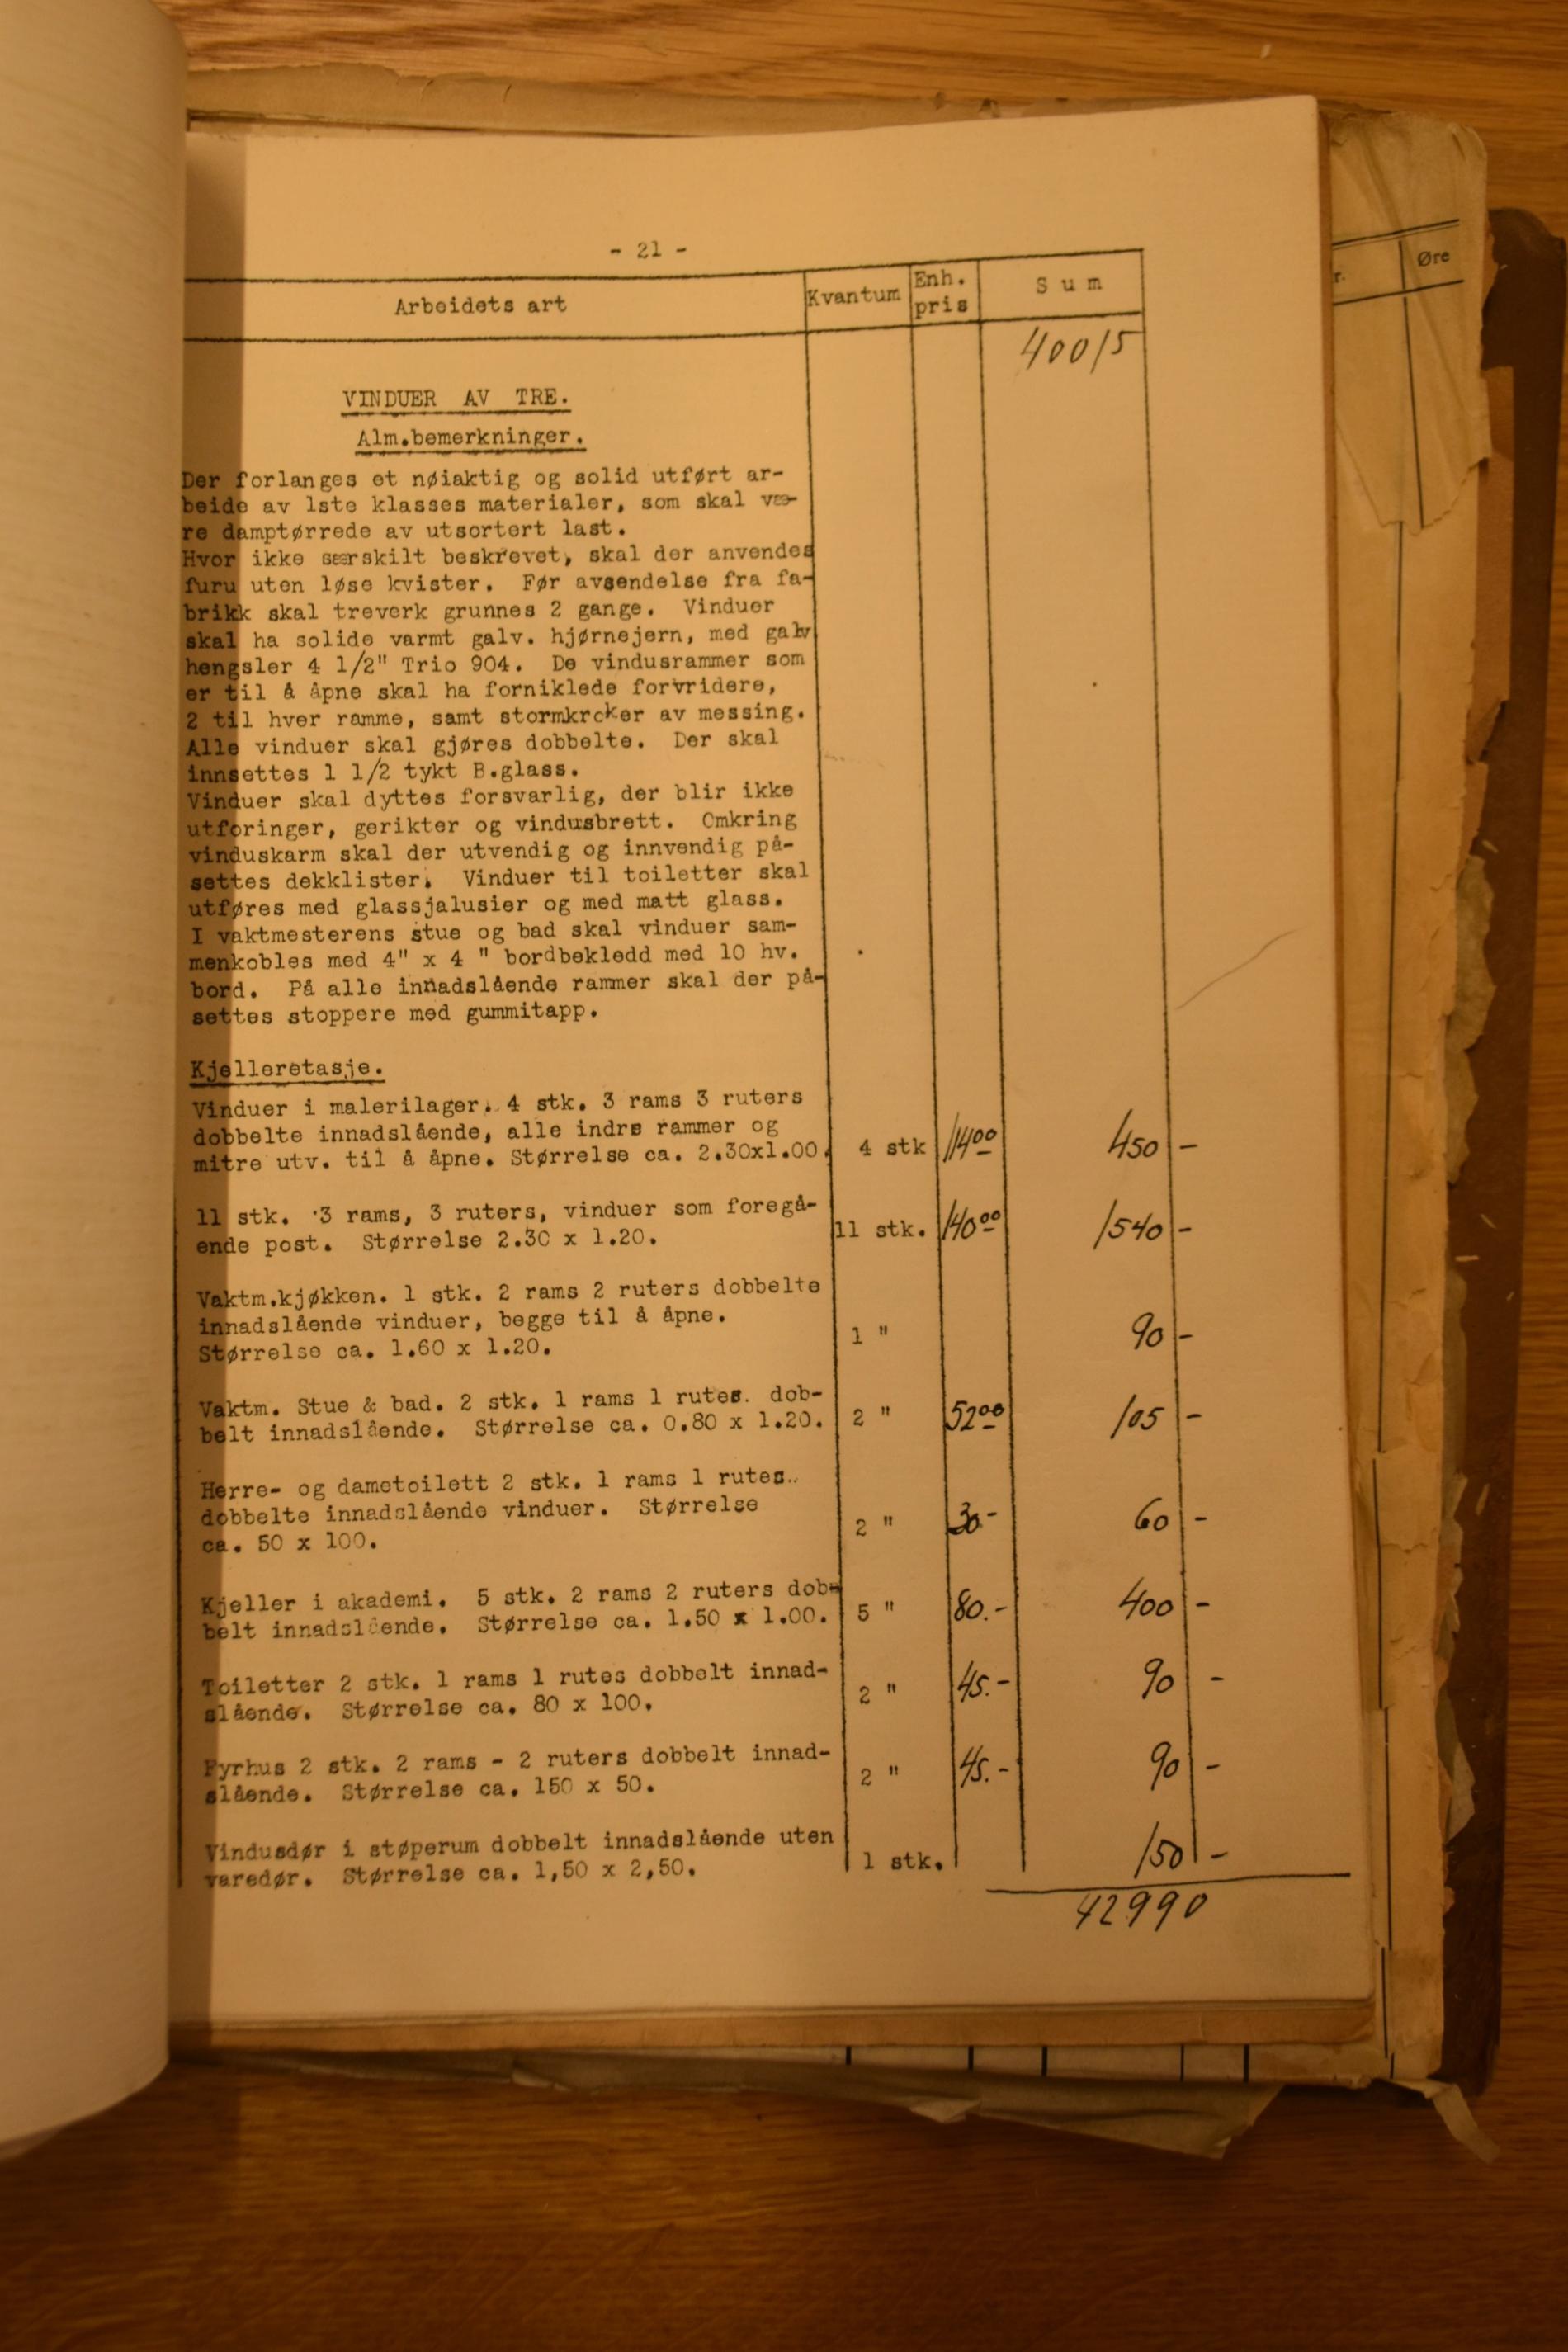 - 21 -
Arbeidets art Kvantum Enh. pris Sum
r. Øre
40015
VINDUER AV TRE.
Alm.bemerkninger.
Der forlanges et nøiaktig og solid utført ar-
beide av 1ste klasses materialer, som skal væ-
re damptørrede av utsortert last.
Hvor ikke særskilt beskrevet, skal der anvendes
furu uten løse kvister. Før avsendelse fra fa-
brikk skal treverk grunnes 2 gange. Vinduer
skal ha solide varmt galv. hjørnejern, med galv
hengsler 4 1/2" Trio 904. De vindusrammer som
er til å åpne skal ha forniklede forvridere,
2 til hver ramme, samt stormkroker av messing.
Alle vinduer skal gjøres dobbelte. Der skal
innsettes 1 1/2 tykt B.glass.
Vinduer skal dyttes forsvarlig, der blir ikke
utforinger, gerikter og vindusbrett. Omkring
vinduskarm skal der utvendig og innvendig på-
settes dekklister. Vinduer til toiletter skal
utføres med glassjalusier og med matt glass.
I vaktmesterens stue og bad skal vinduer sam-
menkobles med 4" x 4 " bordbekledd med 10 hv.
bord. På alle innadslående rammer skal der på-
settes stoppere med gummitapp.
Kjelleretasje.
Vinduer i malerilager. 4 stk. 3 rams 3 ruters
dobbelte innadslående, alle indre rammer og
mitre utv. til å åpne. Størrelse ca. 2.30x1.00. 4 stk 114 00 450 -
11 stk. 3 rams, 3 ruters, vinduer som foregå-
ende post. Størrelse 2.30 x 1.20. 11 stk. 140 00 1540 -
Vaktm.kjøkken. 1 stk. 2 rams 2 ruters dobbelte
innadslående vinduer, begge til å åpne.
Størrelse ca. 1.60 x 1.20. 1 " 90 -
Vaktm. Stue & bad. 2 stk. 1 rams 1 rutes. dob-
belt innadslående. Størrelse ca. 0.80 x 1.20. 2 " 52 00 105 -
Herre- og dametoilett 2 stk. 1 rams 1 rutes..
dobbelte innadslående vinduer. Størrelse
ca. 50 x 100. 2 " 30.- 60 -
Kjeller i akademi. 5 stk. 2 rams 2 ruters dob-
belt innadslående. Størrelse ca. 1.50 x 1.00. 5 " 80.- 400 -
Toiletter 2 stk. 1 rams 1 rutes dobbelt innad-
slående. Størrelse ca. 80 x 100. 2 " 45.- 90 -
Fyrhus 2 stk. 2 rams - 2 ruters dobbelt innad-
slående. Størrelse ca. 150 x 50. 2 " 45.- 90 -
Vindusdør i støperum dobbelt innadslående uten
varedør. Størrelse ca. 1,50 x 2,50. 1 stk. 150 -
42990